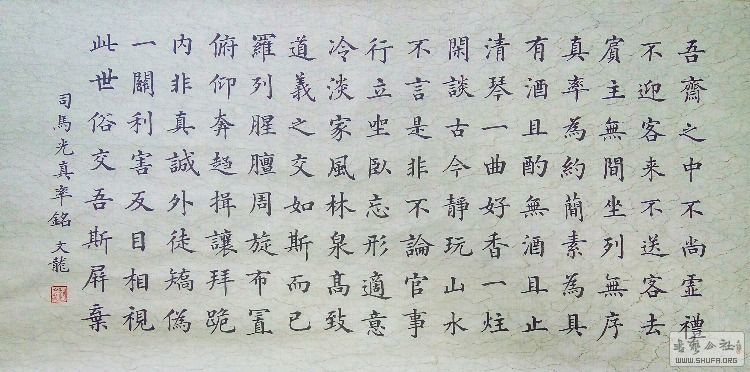 吾齋之中不尚虛禮
不迎客来不送客去
賓主無間坐列無序
真率為約簡素為具
有酒且酌無酒且止
清琴一曲好香一炷
閑談古今靜玩山水
不言是非不論官事
行立坐臥忘形適意
冷淡家風林泉髙致
道義之交如斯而已
羅列腥膻周旋布置
俯仰奔趨揖讓拜跪
内非真誠外徒矯偽
一關利害反目相視
此世俗交吾斯屏棄
司馬光真率銘 文龍
书艺公社
WWW.SHUFA.ORG